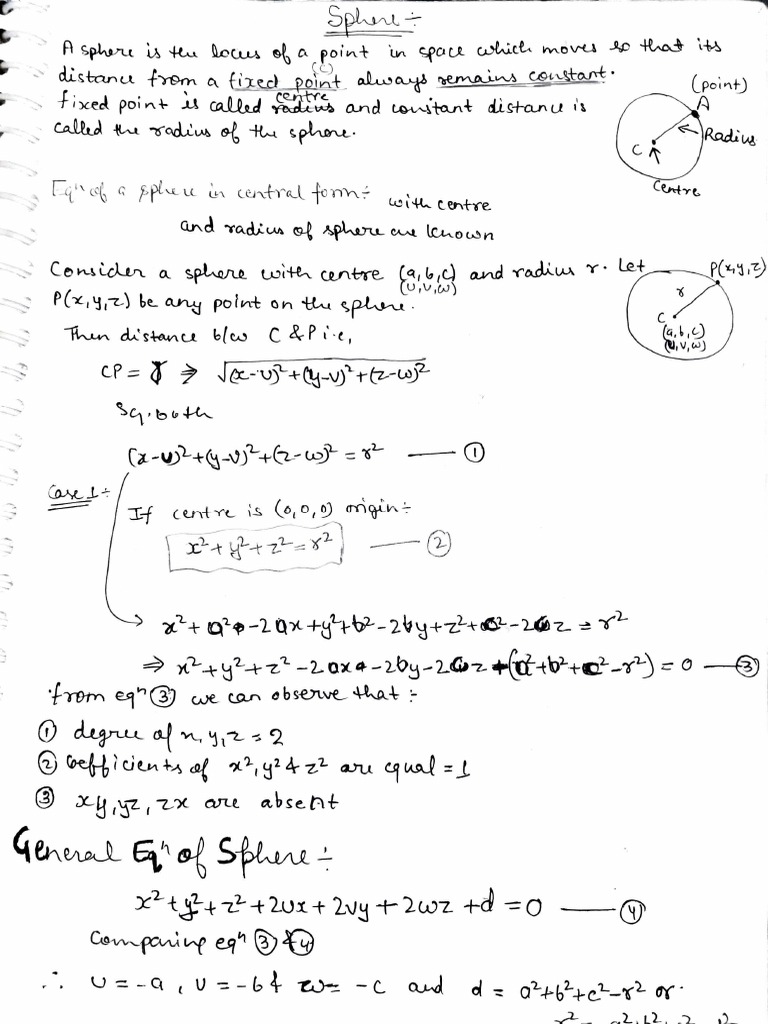 Sphere :-
A sphere is the locus of a point in space which moves so that its
distance from a fixed point (c) always remains constant.
fixed point is called centre and constant distance is
called the radius of the sphere.
(point)
A
Radius
C
Centre
Eqⁿ of a sphere in central form :- with centre
and radius of sphere are known
Consider a sphere with centre (a,b,c) and radius r. Let
(u,v,w)
P(x,y,z) be any point on the sphere.
P(x,y,z)
r
C
(a,b,c)
(u,v,w)
Then distance b/w C & P i.e,
CP = r ⇒ √(x-u)²+(y-v)²+(z-w)²
Sq. both
(x-u)²+(y-v)²+(z-w)² = r² — ①
Case 1 :-
If centre is (0,0,0) origin :-
x²+y²+z²=r² — ②
x²+a²-2ax+y²+b²-2by+z²+c²-2cz = r²
⇒ x²+y²+z²-2ax-2by-2cz+(a²+b²+c²-r²) = 0 — ③
from eqⁿ ③ we can observe that :-
① degree of x,y,z = 2
② Coefficients of x²,y² & z² are equal = 1
③ xy, yz, zx are absent
General Eqⁿ of Sphere :-
x²+y²+z²+2ux+2vy+2wz+d = 0 — ④
Comparing eqⁿ ③ & ④
∴ u = -a, v = -b & w = -c and d = a²+b²+c²-r² or